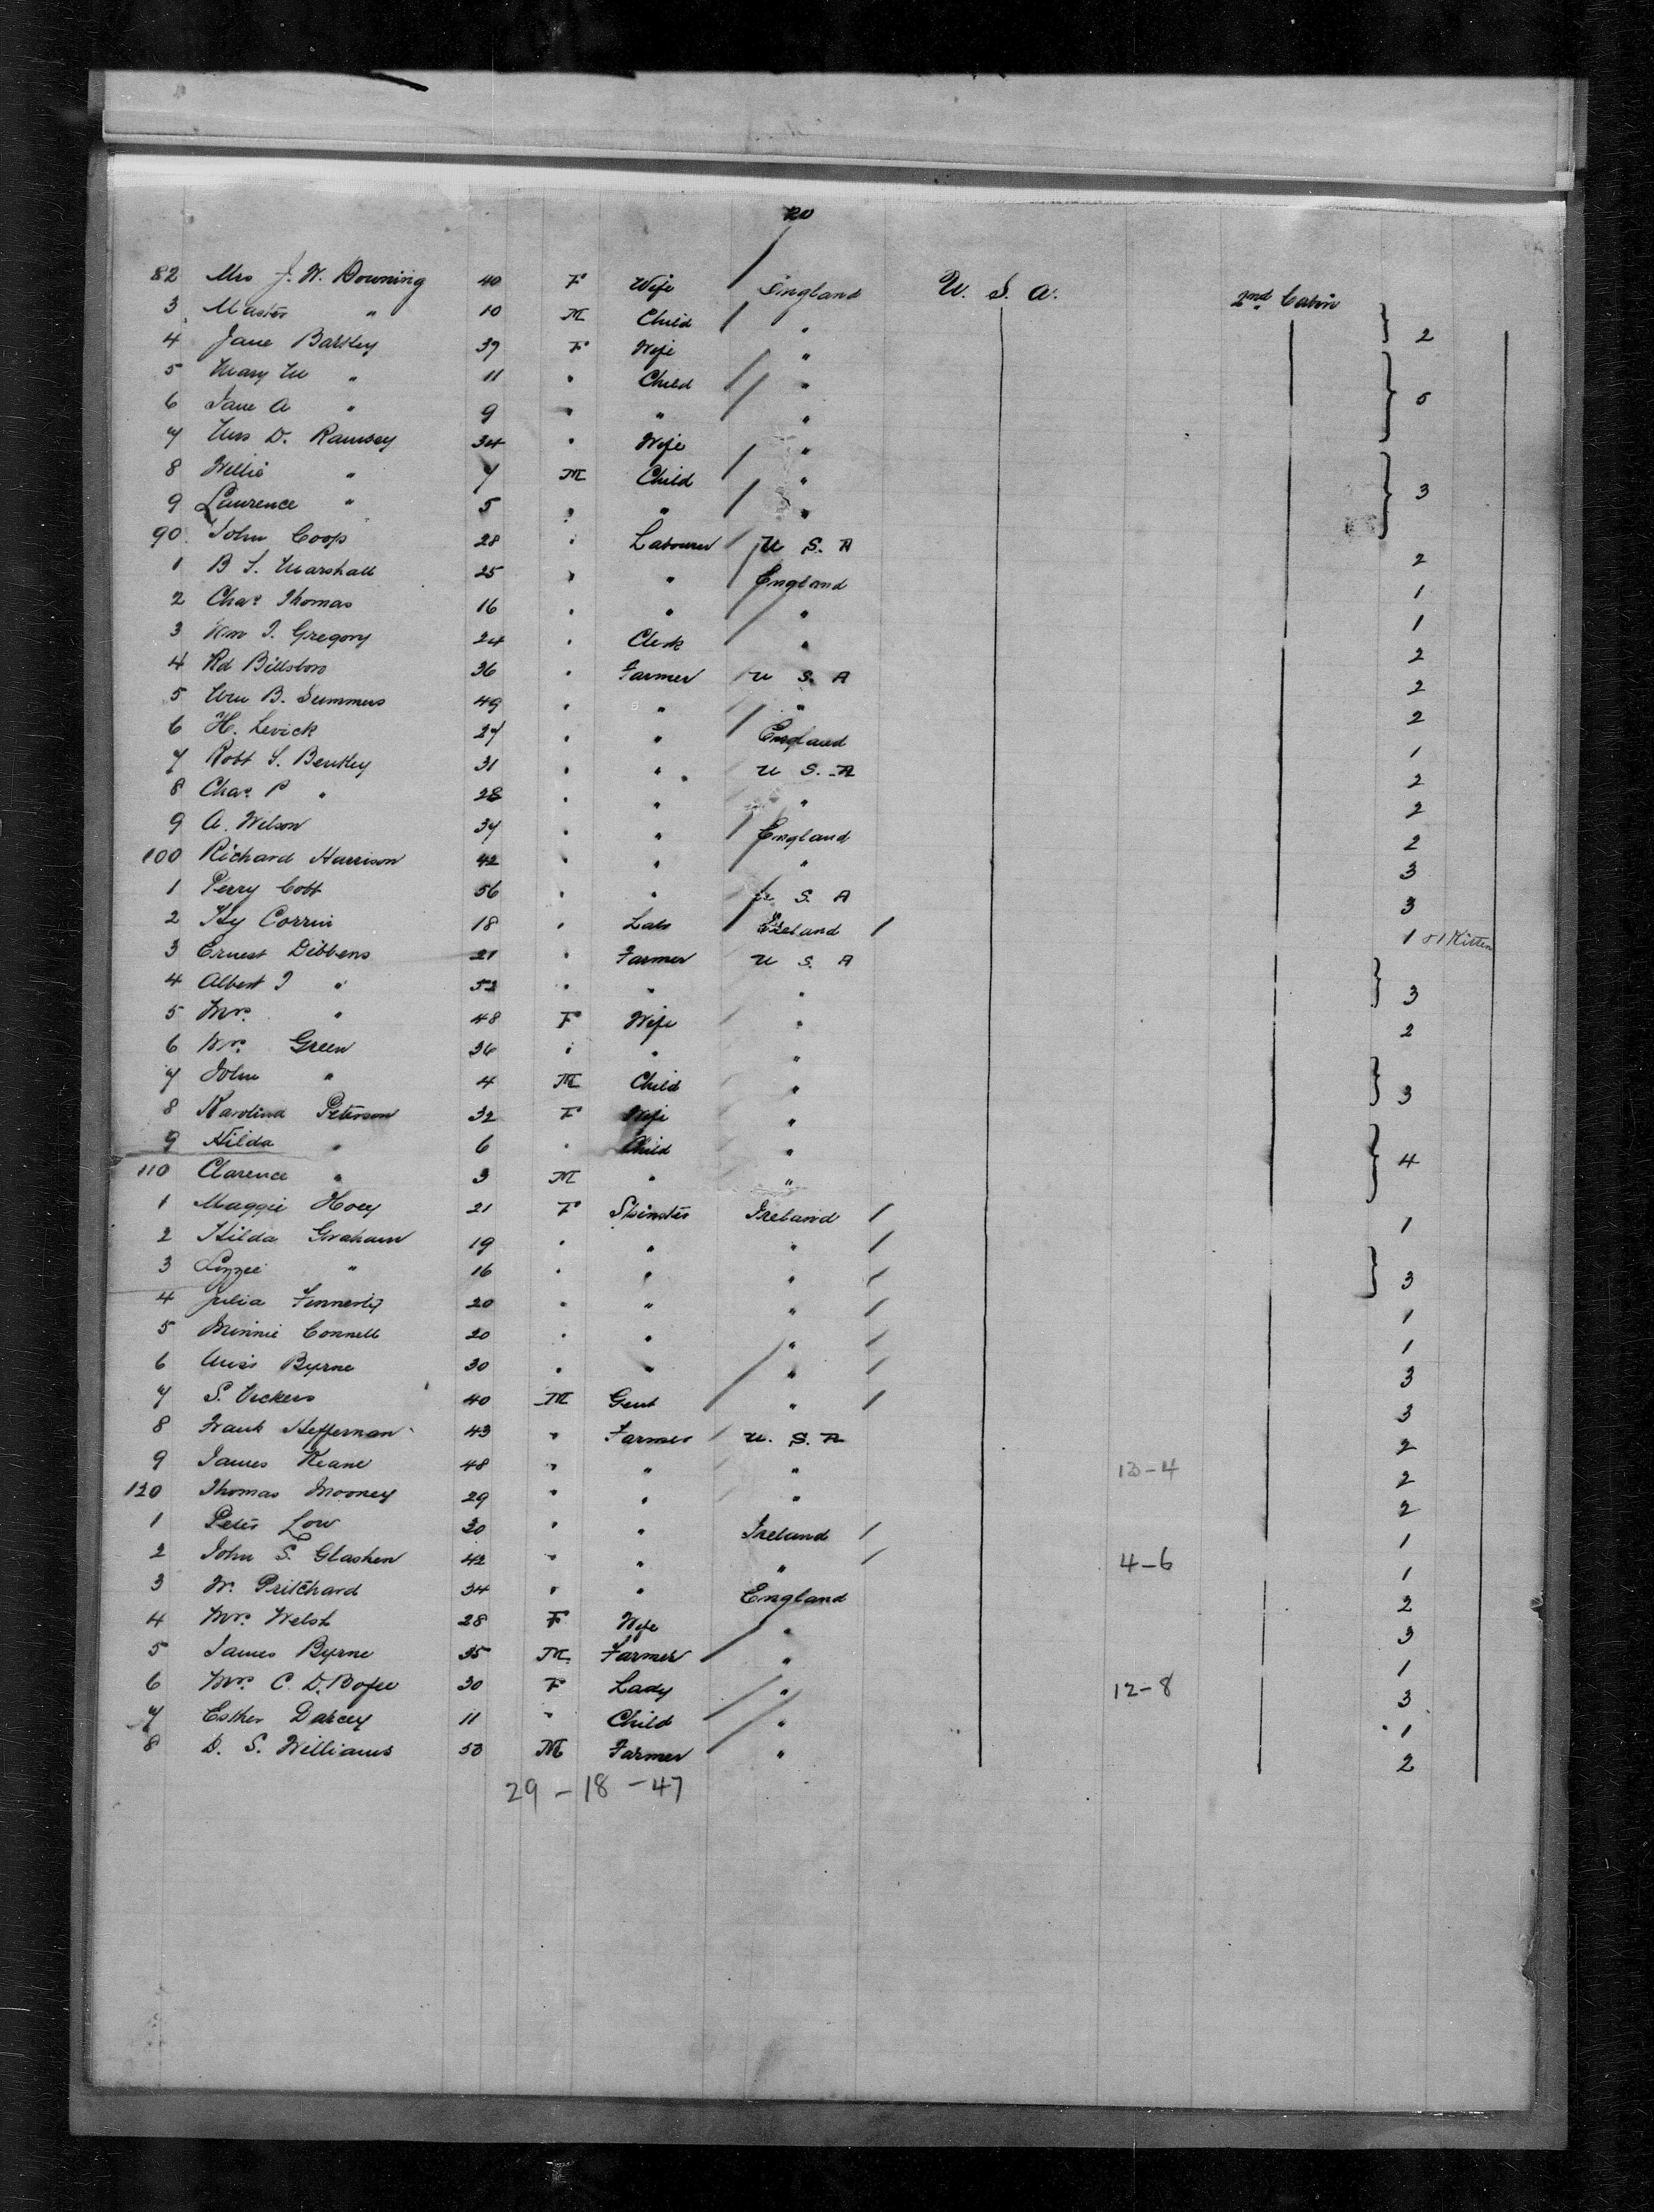 20
82 Mrs J. W. Downing 40 F Wife England U. S. A. 2nd Cabin
3 Master " 10 M Child " } 2
4 Jane Bartley 37 F Wife "
5 Mary M " 11 " Child " } 5
6 Jane A " 9 " " "
7 Mrs D. Ramsey 34 " Wife "
8 Willie " 7 M Child " } 3
9 Laurence " 5 " " "
90 John Coop 28 " Labourer U S. A 2
1 B S. Marshall 25 " " England 1
2 Chas Thomas 16 " " " 1
3 Wm J. Gregory 24 " Clerk " 2
4 Rd 36 " Farmer U S. A 2
5 Wm B. Summers 49 " " " 2
6 H. Levick 27 " " England 1
7 Robt S. Bentley 31 " " U S. A 2
8 Chas P " 28 " " " 2
9 A. Wilson 37 " " England 2
100 Richard Harrison 42 " " " 3
1 Perry Cobb 56 " " U S. A 3
2 Hy Corrin 18 " Lab 1
3 Ernest Dibbens 21 " Farmer U S. A
4 Albert J " 52 " " " } 3
5 Mrs " 48 F Wife " 2
6 Mrs Green 36 " " "
7 John " 4 M Child " } 3
8 Karolina Peterson 32 F Wife "
9 Hilda " 6 " Child " } 4
110 Clarence " 3 M " "
1 Maggie Hoey 21 F Spinster Ireland / 1
2 Hilda Graham 19 " " " /
3 Lizzie " 16 " " " / } 3
4 Julia Finnerty 20 " " " / 1
5 Minnie Connell 20 " " " / 1
6 Miss Byrne 30 " " " / 3
7 S. Vickers 40 M Gent " / 3
8 Frank Heffernan 43 " Farmer U. S. A 2
9 James Keane 48 " " " 13-4 2
120 Thomas Mooney 29 " " " 2
1 Peter Low 30 " " Ireland / 1
2 John S. Glashen 42 " " " / 4-6 1
3 W. Pritchard 34 " " England 2
4 Mrs Welsh 28 F Wife " 3
5 James Byrne 35 M Farmer " 1
6 Mrs C. D. 30 F Lady " 12-8 3
7 Esther Darcey 11 " Child " 1
8 D. S. Williams 50 M Farmer " 2
29 - 18 - 47